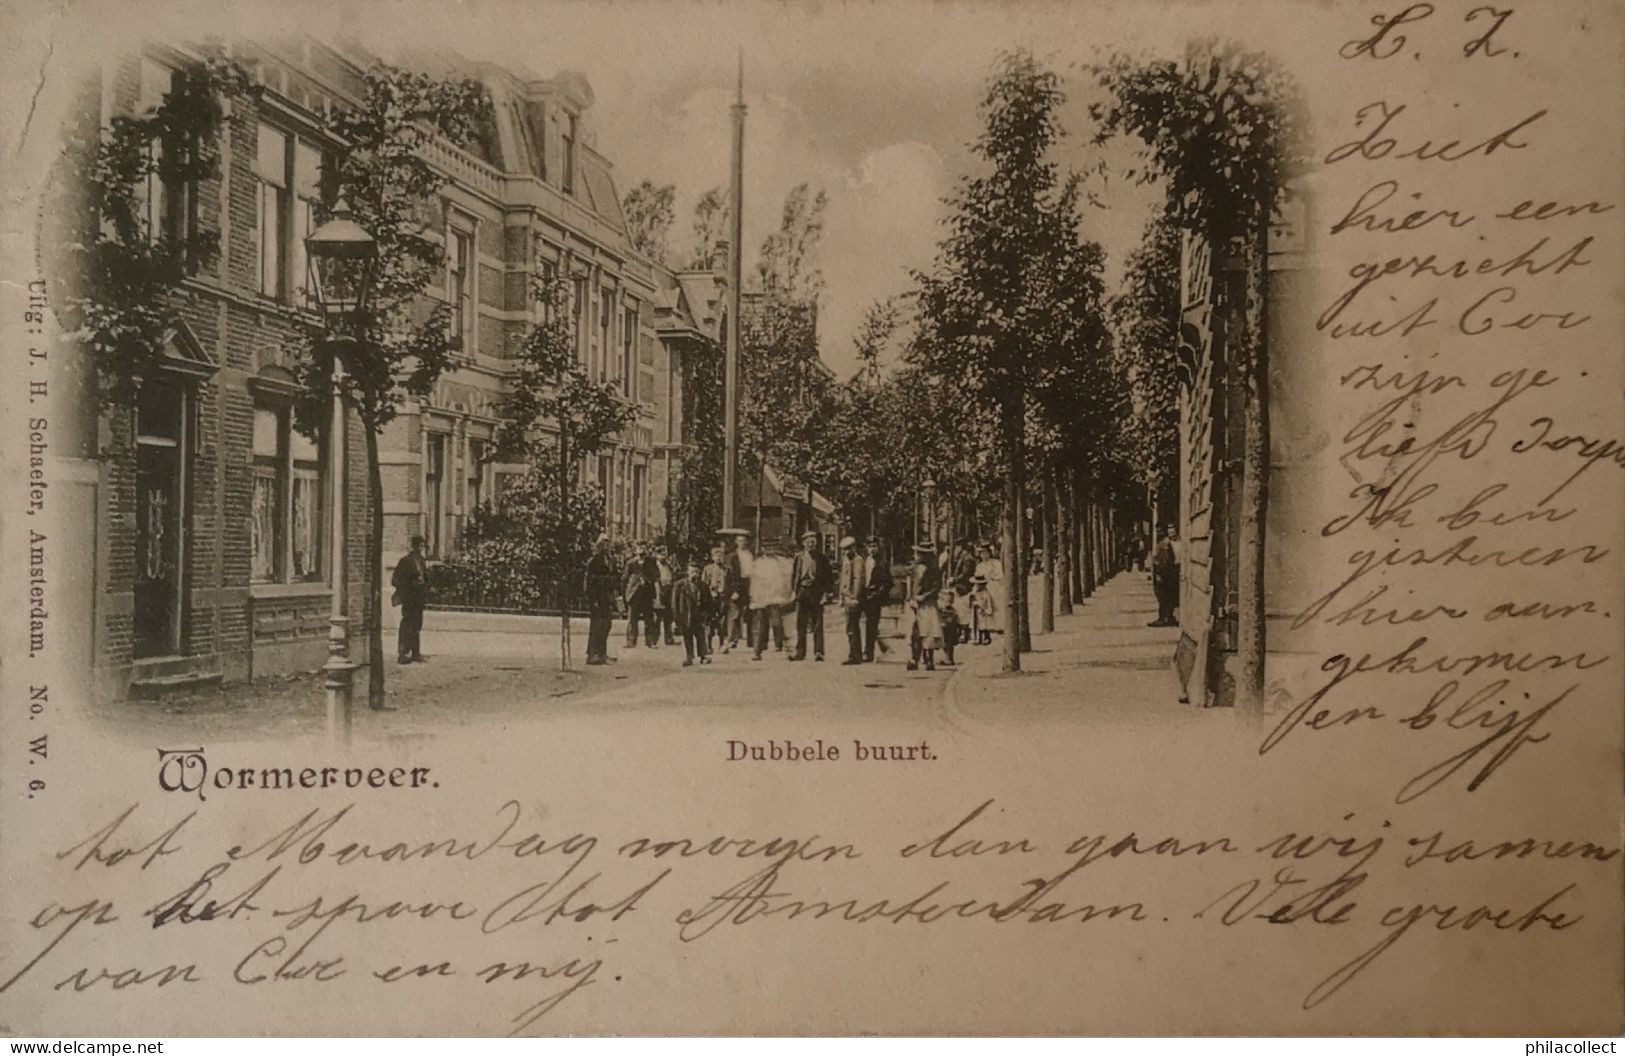 L. Z.
Ziet
hier een
gezicht
uit Cor
zijn ge-
liefd dorp
Ik ben
gisteren
hier aan-
gekomen
en blijf
Wormerveer.
Dubbele buurt.
Uitg: J. H. Schaefer, Amsterdam. No. W. 6.
tot Maandag morgen dan gaan wij samen
op het spoor tot Amsterdam. Vele groete
van Cor en mij.
philacollect